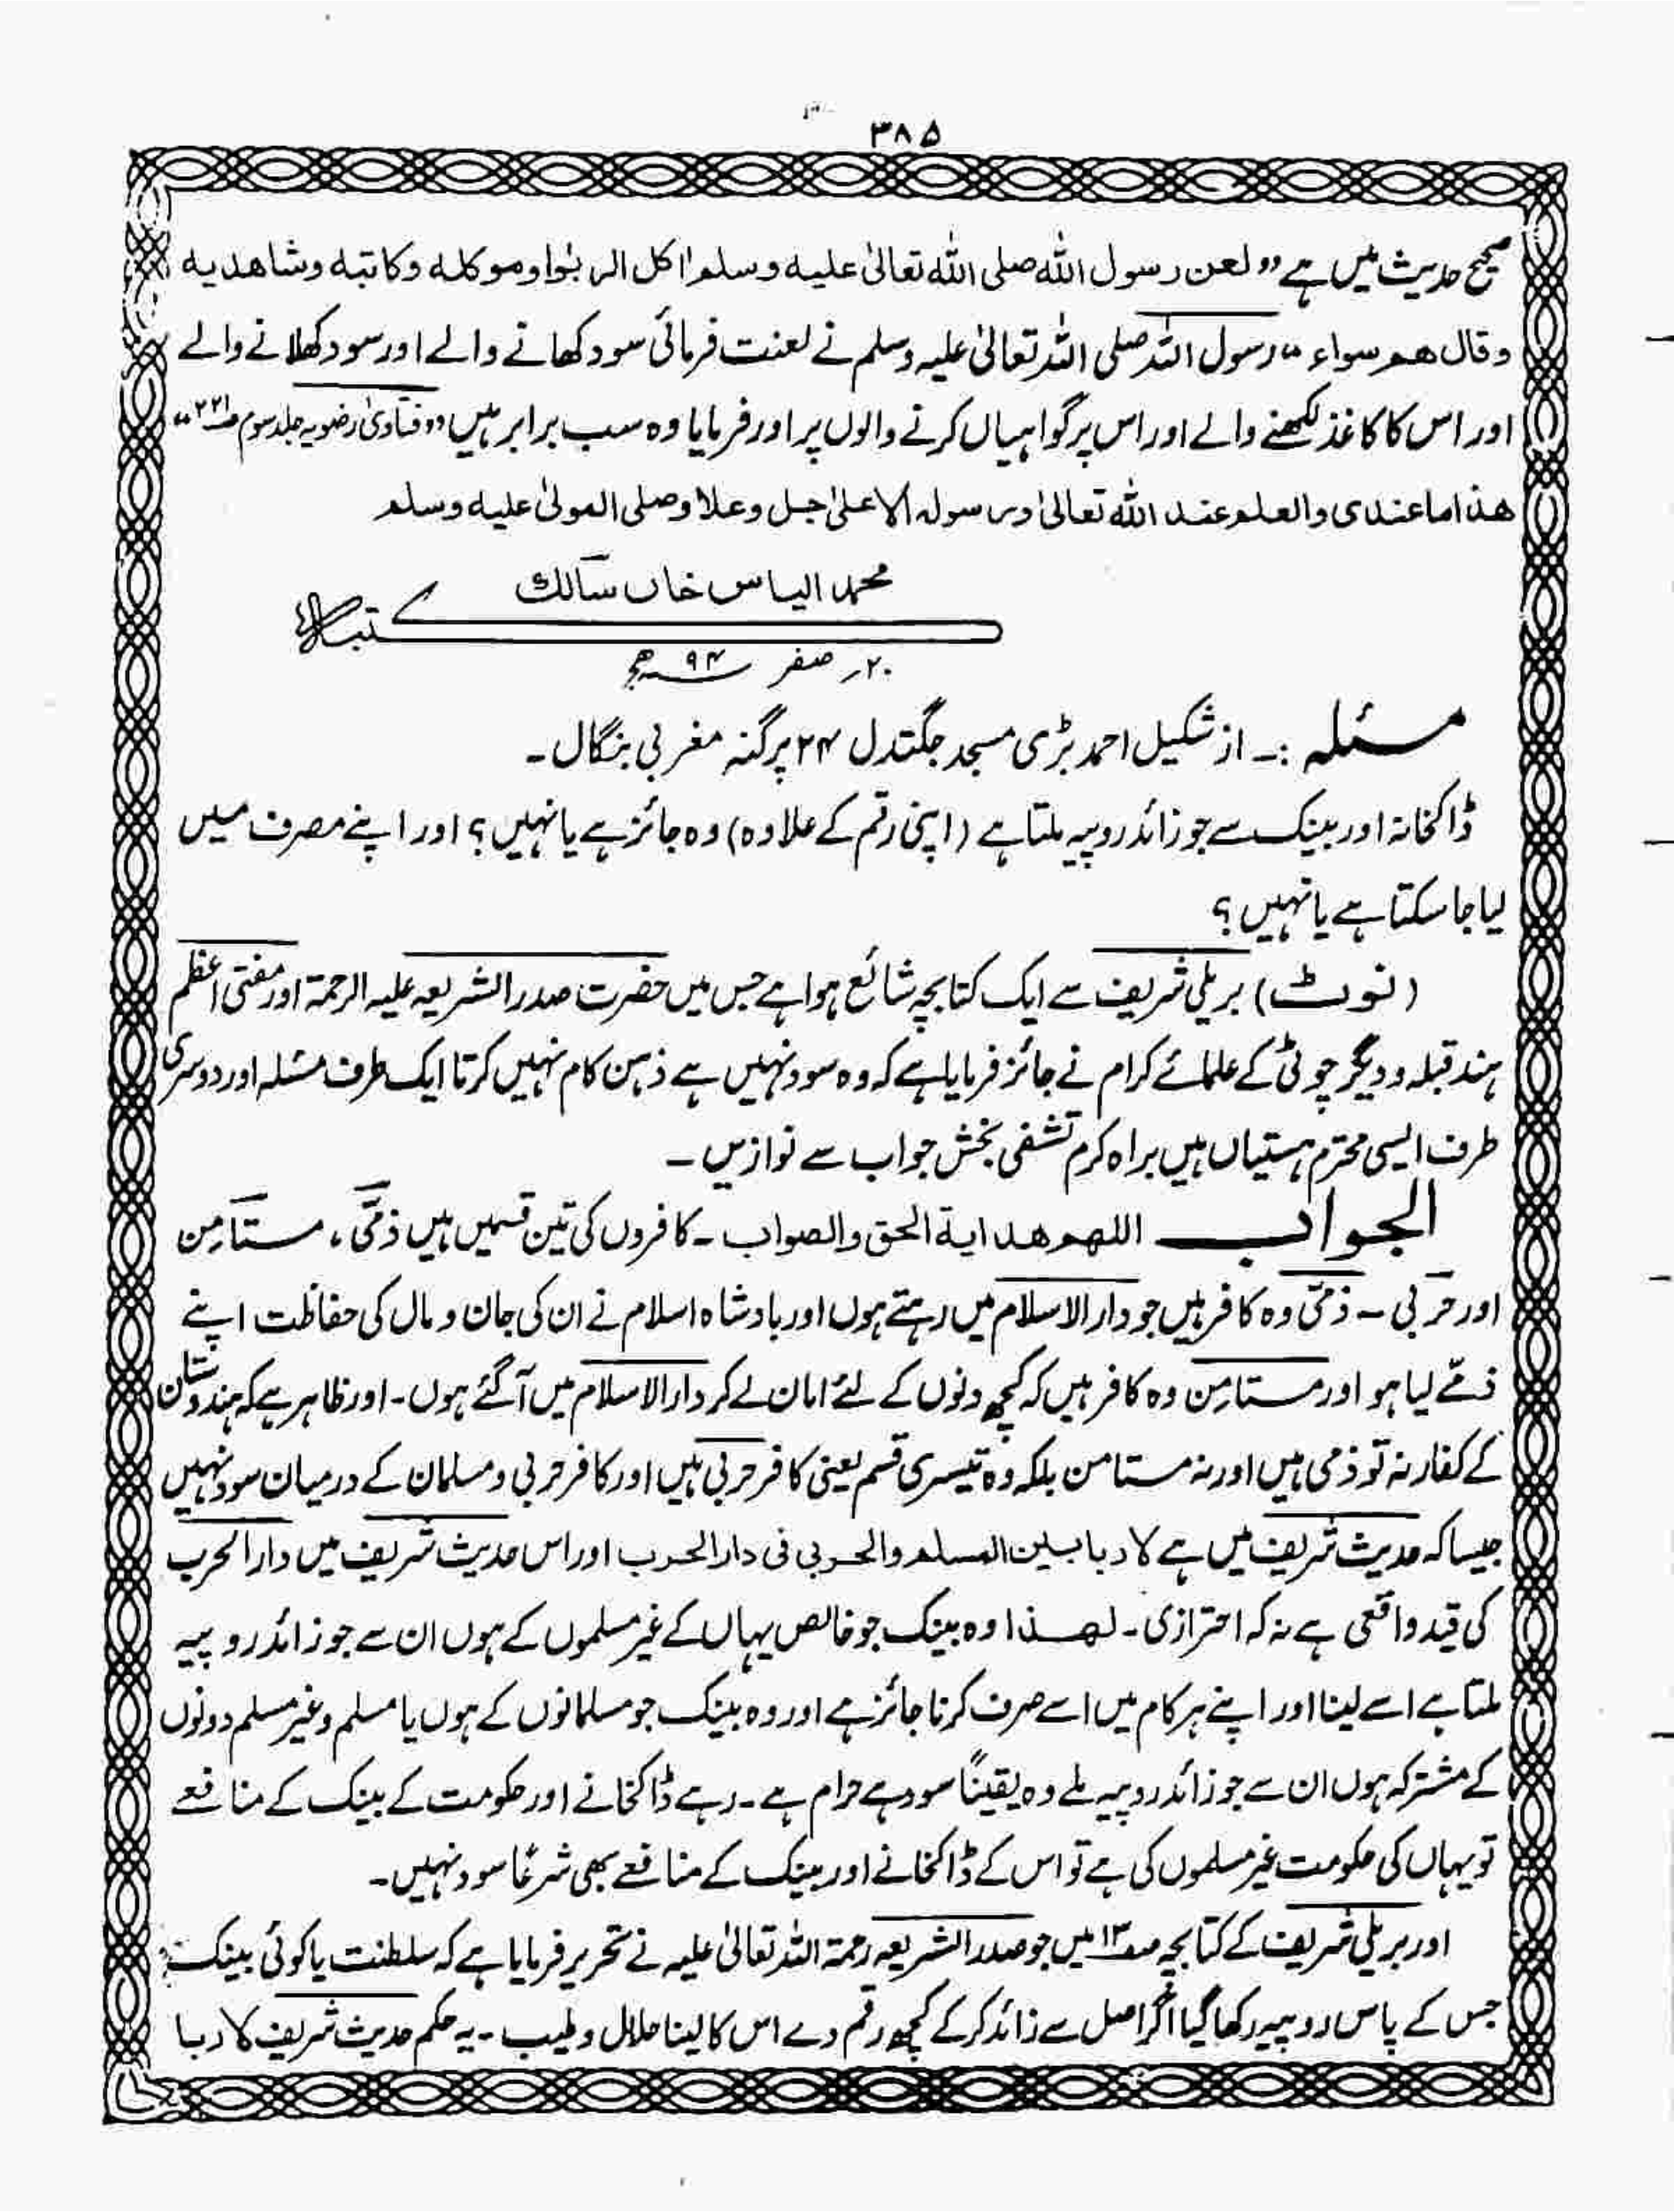 ۳۸۵
صحیح حدیث میں ہے ”لعن رسول اللہ صلی اللہ تعالیٰ علیہ وسلم اٰکل الربٰوا وموکلہ وکاتبہ وشاھدیہ
وقال ھم سواء“ رسول اللہ صلی اللہ تعالیٰ علیہ وسلم نے لعنت فرمائی سود کھانے والے اور سود کھلانے والے
اور اس کا کاغذ لکھنے والے اور اس پر گواہیاں کرنے والوں پر اور فرمایا وہ سب برابر ہیں ”فتاویٰ رضویہ جلد سوم ص۲۲۱“
ھذا ماعندی والعلم عند اللہ تعالیٰ ورسولہ الاعلیٰ جل وعلا وصلی المولیٰ علیہ وسلم
محمد الیاس خاں سالکؔ
کتبہ
۲۰ر صفر ۹۴ھج
مسئلہ :۔ از شکیل احمد بڑی مسجد جگتدل ۲۴ پرگنہ مغربی بنگال۔
ڈاکخانہ اور بینک سے جو زائد روپیہ ملتا ہے (اپنی رقم کے علاوہ) وہ جائز ہے یا نہیں؟ اور اپنے مصرف میں
لیا جا سکتا ہے یا نہیں؟
(نوٹ) بریلی شریف سے ایک کتابچہ شائع ہوا ہے جس میں حضرت صدر الشریعہ علیہ الرحمۃ اور مفتی اعظم
ہند قبلہ و دیگر چوٹی کے علمائے کرام نے جائز فرمایا ہے کہ وہ سود نہیں ہے ذہن کام نہیں کرتا ایک طرف مسئلہ اور دوسری
طرف ایسی محترم ہستیاں ہیں براہ کرم تشفی بخش جواب سے نوازیں۔
الجواب اللھم ھدایۃ الحق والصواب۔ کافروں کی تین قسمیں ہیں ذمّی، مستامِن
اور حربی۔ ذمّی وہ کافر ہیں جو دارالاسلام میں رہتے ہوں اور بادشاہ اسلام نے ان کی جان و مال کی حفاظت اپنے
ذمّے لیا ہو اور مستامِن وہ کافر ہیں کہ کچھ دنوں کے لئے امان لے کر دارالاسلام میں آگئے ہوں۔ اور ظاہر ہے کہ ہندوستان
کے کفار نہ تو ذمی ہیں اور نہ مستامن بلکہ وہ تیسری قسم یعنی کافر حربی ہیں اور کافر حربی و مسلمان کے درمیان سود نہیں
جیسا کہ حدیث شریف میں ہے لا ربا بین المسلم والحربی فی دارالحرب اور اس حدیث شریف میں دارالحرب
کی قید واقعی ہے نہ کہ احترازی۔ لھذا وہ بینک جو خالص یہاں کے غیر مسلموں کے ہوں ان سے جو زائد روپیہ
ملتا ہے اسے لینا اور اپنے ہر کام میں اسے صرف کرنا جائز ہے اور وہ بینک جو مسلمانوں کے ہوں یا مسلم و غیر مسلم دونوں
کے مشترکہ ہوں ان سے جو زائد روپیہ ملے وہ یقیناً سود ہے حرام ہے۔ رہے ڈاکخانے اور حکومت کے بینک کے منافعے
تو یہاں کی حکومت غیر مسلموں کی ہے تو اس کے ڈاکخانے اور بینک کے منافعے بھی شرعًا سود نہیں۔
اور بریلی شریف کے کتابچہ ص۱۳ میں جو صدر الشریعہ رحمۃ اللہ تعالیٰ علیہ نے تحریر فرمایا ہے کہ سلطنت یا کوئی بینک
جس کے پاس روپیہ رکھا گیا اگر اصل سے زائد کرکے کچھ رقم دے اس کا لینا حلال و طیب۔ یہ حکم حدیث شریف لا ربا